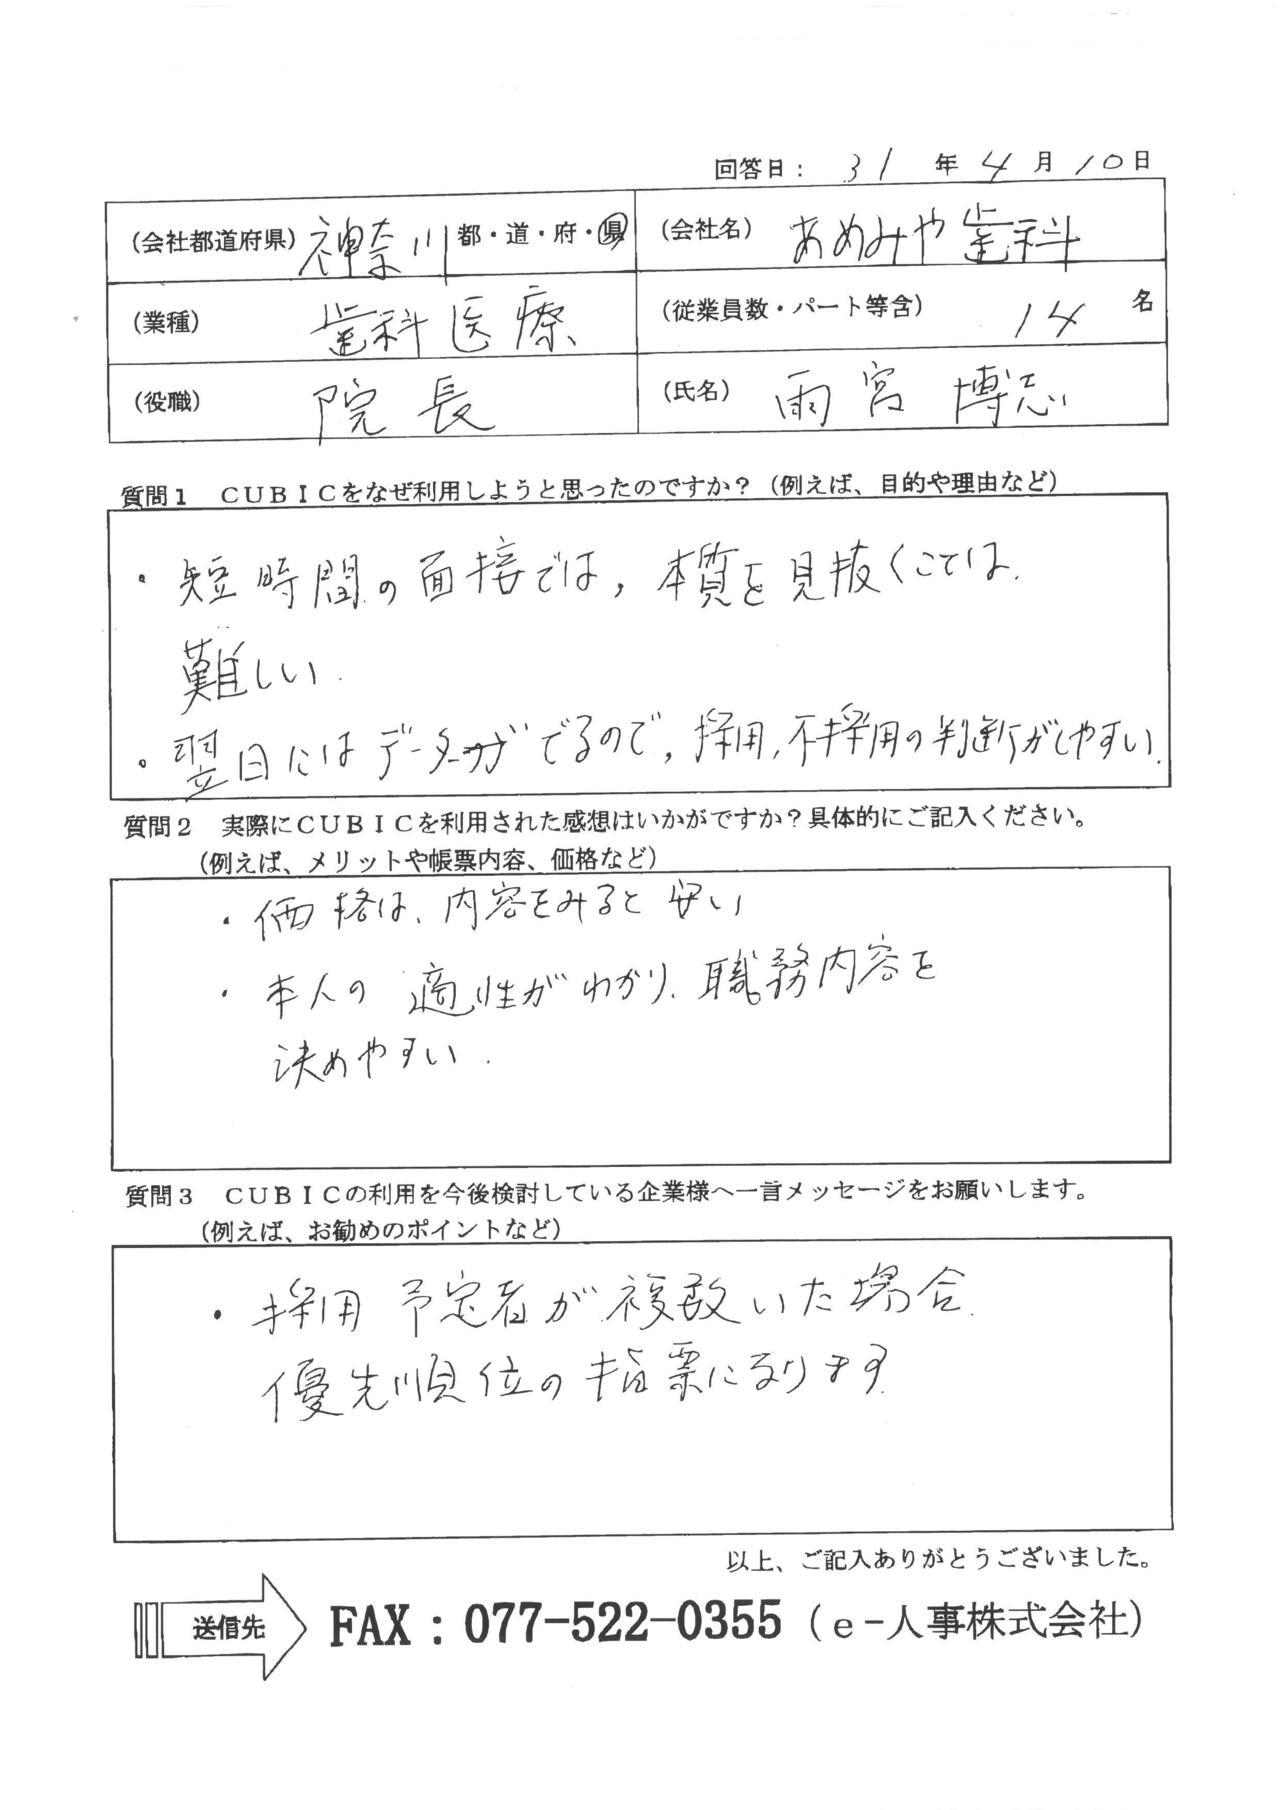 回答日： 31 年 4 月 10 日
(会社都道府県) 神奈川 都・道・府・県 (会社名) あめみや歯科
(業種) 歯科医療 (従業員数・パート等含) 14 名
(役職) 院長 (氏名) 雨宮 博志
質問１　ＣＵＢＩＣをなぜ利用しようと思ったのですか？（例えば、目的や理由など）
・短時間の面接では, 本質を見抜くことは.
難しい.
・翌日にはデータがでるので, 採用, 不採用の判断がしやすい.
質問２　実際にＣＵＢＩＣを利用された感想はいかがですか？具体的にご記入ください。
（例えば、メリットや帳票内容、価格など）
・価格は、内容をみると安い
・本人の適性がわかり、職務内容を
決めやすい.
質問３　ＣＵＢＩＣの利用を今後検討している企業様へ一言メッセージをお願いします。
（例えば、お勧めのポイントなど）
・採用予定者が複数いた場合.
優先順位の指票になります
以上、ご記入ありがとうございました。
送信先 FAX：077-522-0355（e-人事株式会社）